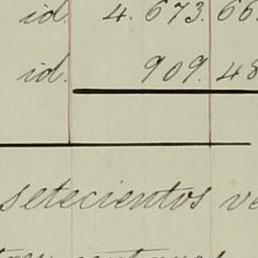 id. 4.673.66.
id. 909.48
setecientos ve